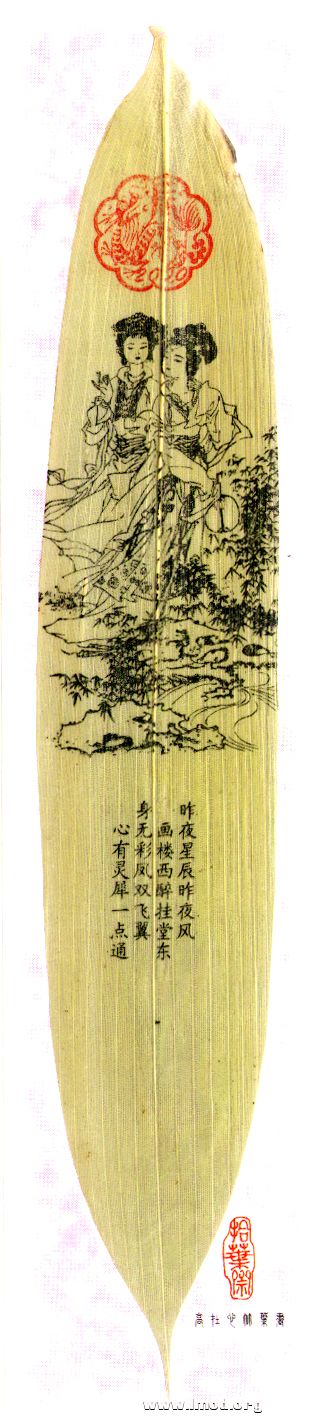 昨夜星辰昨夜风
画楼西醉挂堂东
身无彩凤双飞翼
心有灵犀一点通
拾葉
www.lmod.org